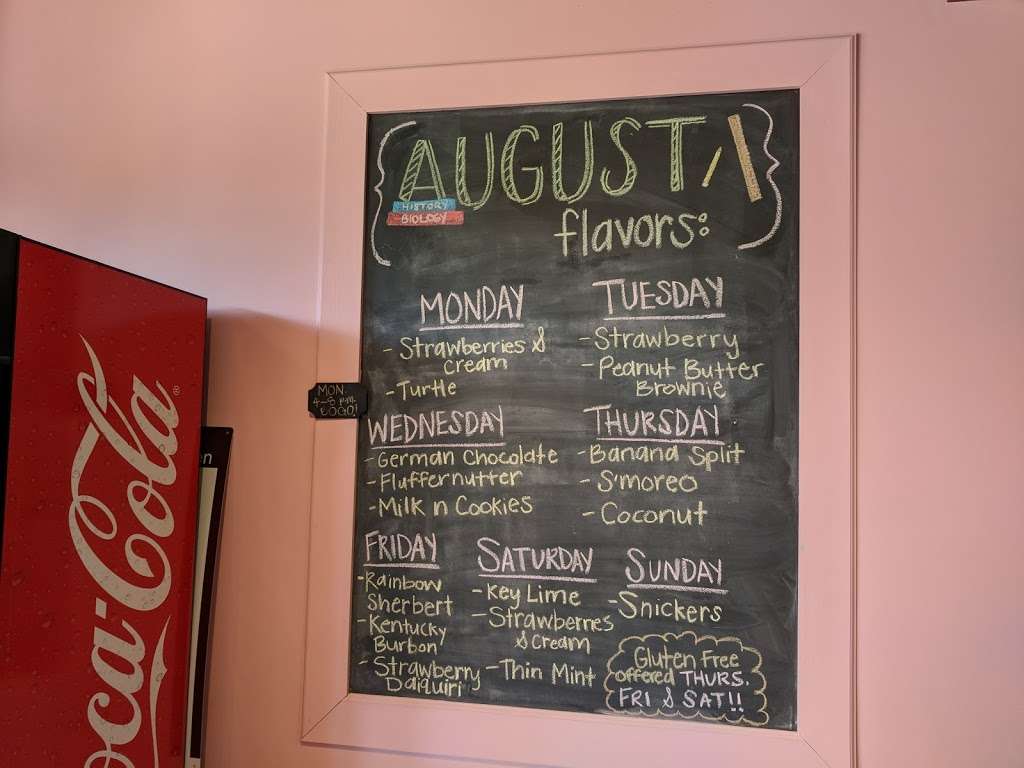 AUGUST
HISTORY
BIOLOGY
flavors:
MONDAY
- Strawberries &
cream
- Turtle
TUESDAY
- Strawberry
- Peanut Butter
Brownie
MON.
4-8 p.m.
BOGO!
WEDNESDAY
- German Chocolate
- Fluffernutter
- Milk n Cookies
THURSDAY
- Banana Split
- S'moreo
- Coconut
FRIDAY
- Rainbow
Sherbert
- Kentucky
Burbon
- Strawberry
Daiquiri
SATURDAY
- Key Lime
- Strawberries
& Cream
- Thin Mint
SUNDAY
- Snickers
Gluten Free
offered THURS.
FRI & SAT!!
Coca-Cola®